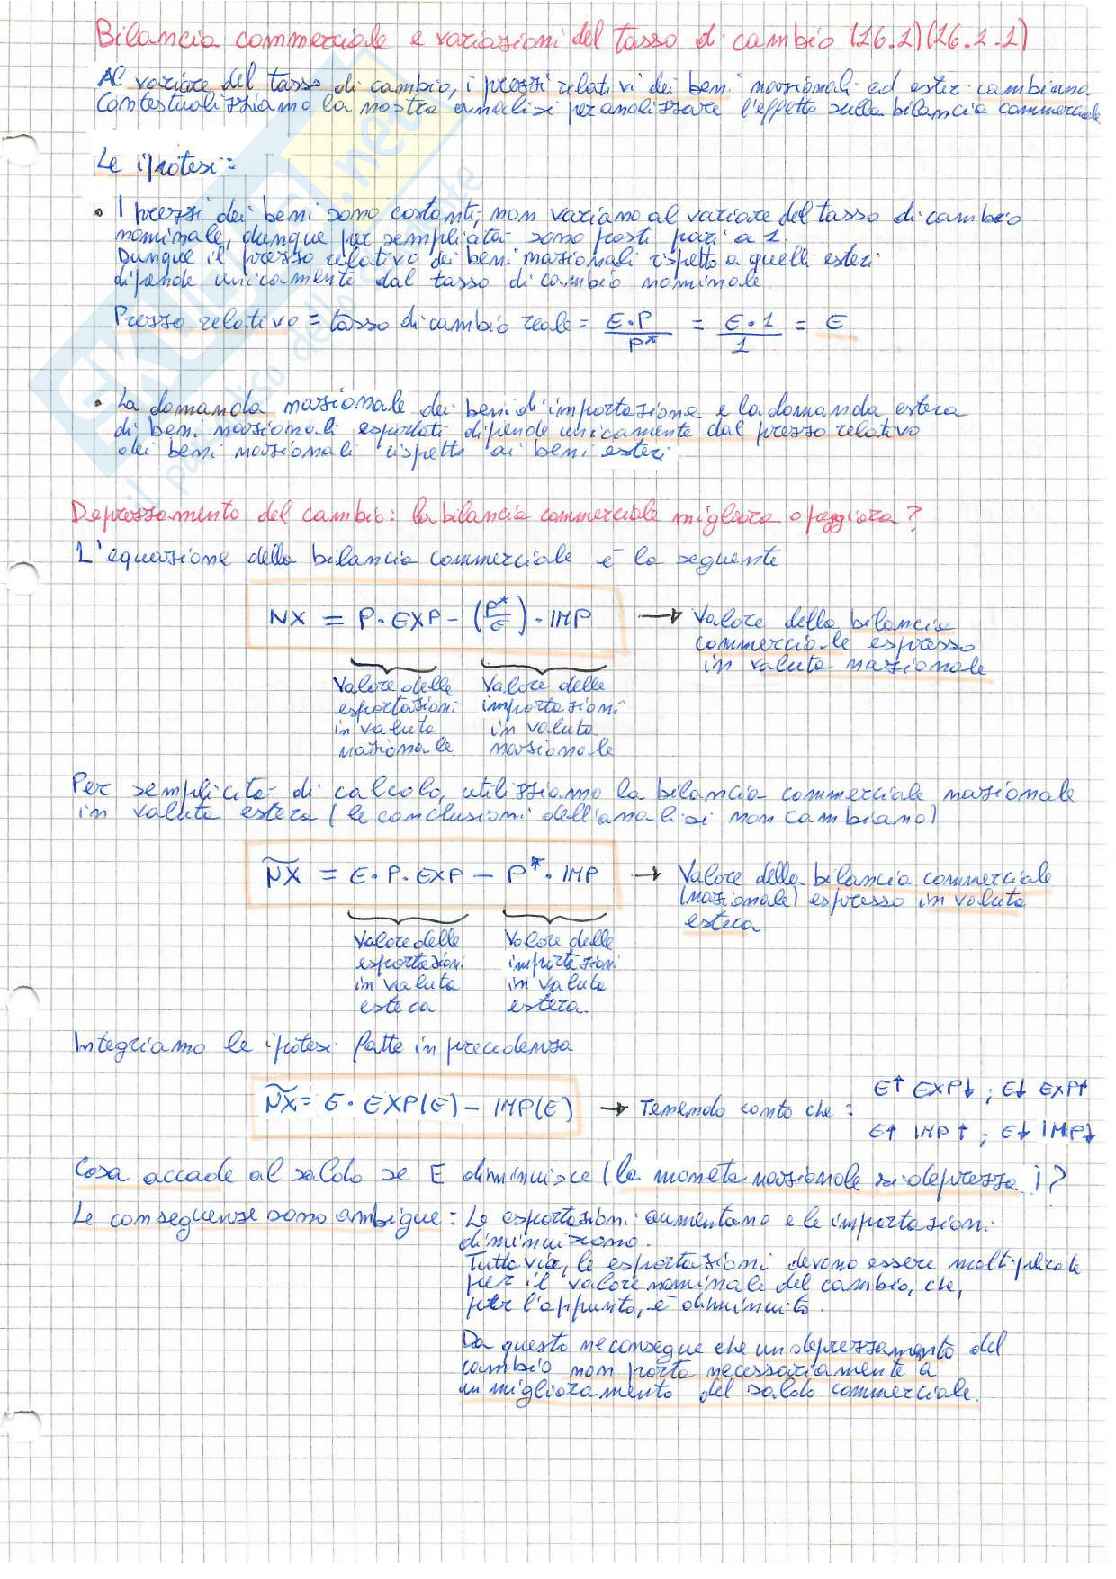 Bilancia commerciale e variazioni del tasso di cambio (16.1)(16.1.1)
Al variare del tasso di cambio, i prezzi relativi dei beni nazionali ed esteri cambiano
Contestualizziamo la nostra analisi per analizzare l'effetto sulla bilancia commerciale
Le ipotesi:
• I prezzi dei beni sono costanti; non variano al variare del tasso di cambio
nominale, dunque per semplicità sono posti pari a 1.
Dunque il prezzo relativo dei beni nazionali rispetto a quelli esteri
dipende unicamente dal tasso di cambio nominale
Prezzo relativo = tasso di cambio reale = E·P/P* = E·1/1 = E
• La domanda nazionale dei beni di importazione e la domanda estera
di beni nazionali esportati dipende unicamente dal prezzo relativo
dei beni nazionali rispetto ai beni esteri
Deprezzamento del cambio: la bilancia commerciale migliora o peggiora?
L'equazione della bilancia commerciale è la seguente
NX = P·EXP - (P*/E)·IMP → Valore della bilancia
commerciale espresso
in valuta nazionale
Valore delle Valore delle
esportazioni importazioni
in valuta in valuta
nazionale nazionale
Per semplicità di calcolo, utilizziamo la bilancia commerciale nazionale
in valuta estera (le conclusioni dell'analisi non cambiano)
ÑX = E·P·EXP - P*·IMP → Valore della bilancia commerciale
(nazionale) espresso in valuta
estera
Valore delle Valore delle
esportazioni importazioni
in valuta in valuta
estera estera.
Integriamo le ipotesi fatte in precedenza
ÑX = E·EXP(E) - IMP(E) → Tenendo conto che: E↑ EXP↓ ; E↓ EXP↑
E↑ IMP↑ ; E↓ IMP↓
Cosa accade al saldo se E diminuisce (la moneta nazionale si deprezza)?
Le conseguenze sono ambigue: Le esportazioni aumentano e le importazioni
diminuiscono.
Tuttavia, le esportazioni devono essere moltiplicate
per il valore nominale del cambio, che,
per l'appunto, è diminuito.
Da questo ne consegue che un deprezzamento del
cambio non porta necessariamente a
un miglioramento del saldo commerciale.